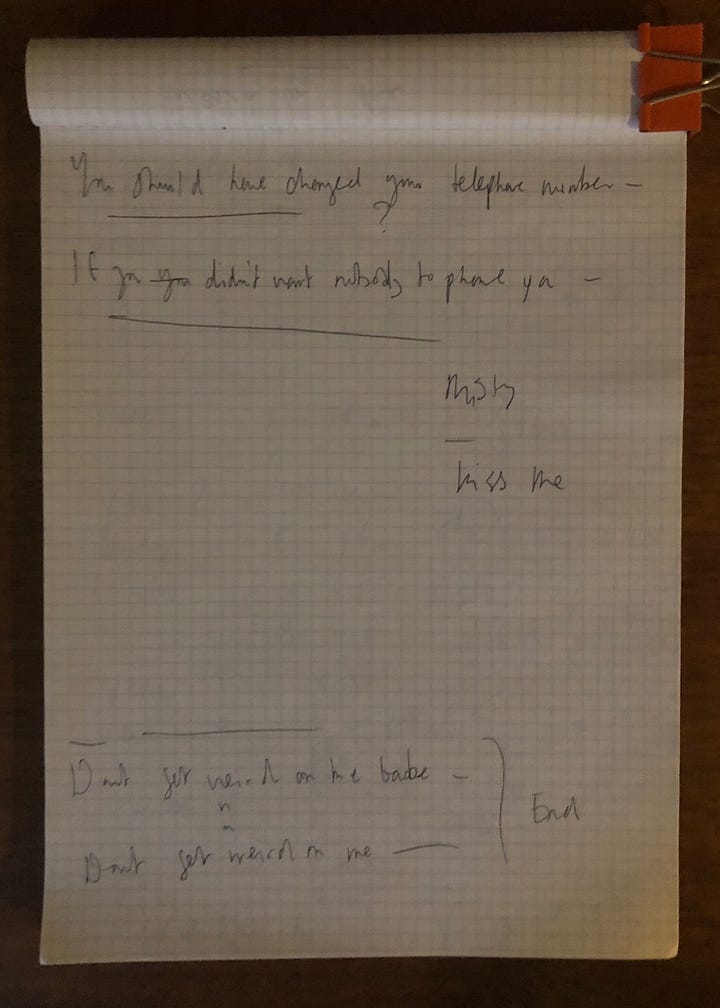 You should have changed your telephone number –
?
If you you didn't want nobody to phone ya –
Misty
kiss me
Don't get weird on me babe –
" "
Don't get weird on me —
End